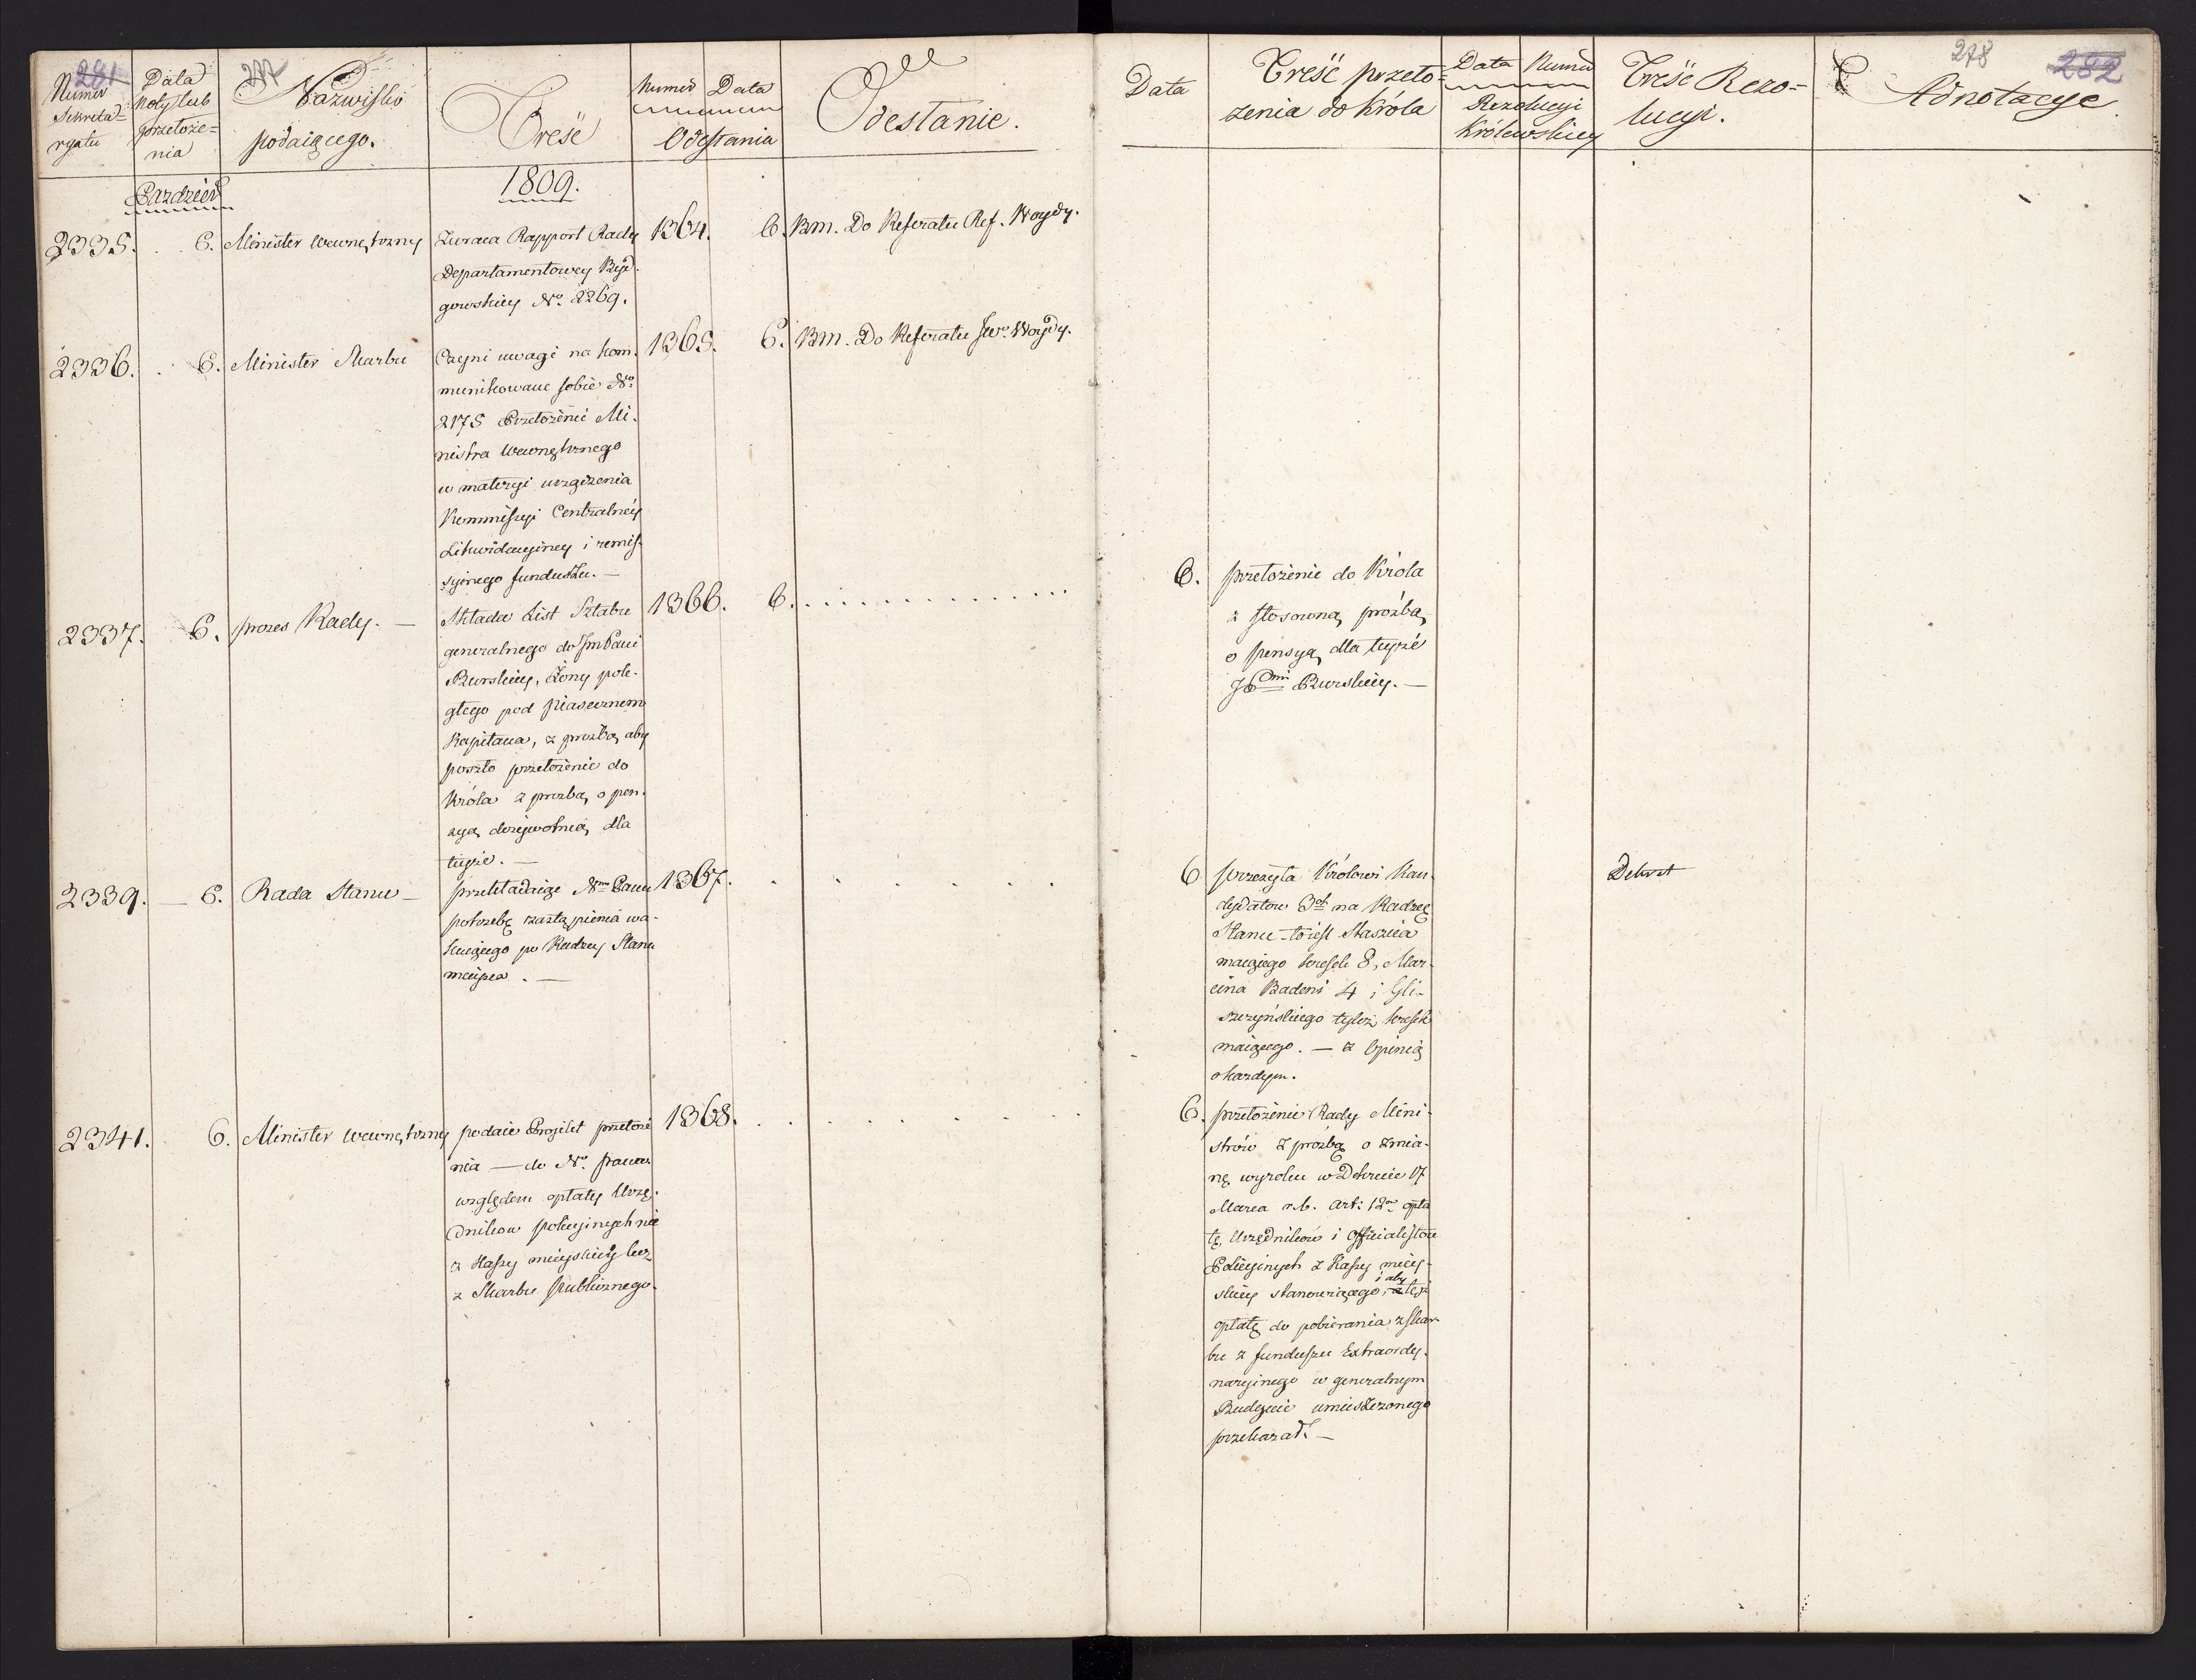 281
277
Numer
Sekreta=
ryatu
Data
Noty lub
przełoże=
nia
Nazwisko
podaiącego.
Treść
Numer Data
Odesłania
Odesłanie.
Pazdzier
1809.
2335. 6. Minister Wewnętrzny
Zwraca Rapport Rady
Departamentowey Byd-
gowskiey No. 2269.
1364. 6. Bm. Do Referatu Ref. Woydy.
2336. 6. Minister Skarbu
Czyni uwagi na kom-
munikowane sobie No.
2175 Przełożenie Mi-
nistra Wewnętrznego
w materyi urządzenia
Kommissyi Centralnéy
Likwidacyiney i remis-
syinego funduszu. —
1365. 6. Bm. Do Referatu Jw. Woydy.
2337. 6. prezes Rady. —
Składa List Sztabu
generalnego do Jm Pani
Burskiey, Żony pole-
głego pod Piasecznem
Kapitana, z prozbą aby
poszło przełożenie do
Króla z prozbą o pen-
syą dożywotnią dla
teyże. —
1366. 6. . . . . . . . . . . . . .
2339. — 6. Rada Stanu —
przekładaiąc Nm Panu
potrzebę zastąpienia wa-
kuiącego po Radzcy Stanu
mieysca. —
1367. . . . . . .
2341. 6. Minister wewnętrzny
podaie Proiekt przełoże
nia — do No. Pana
względem opłaty Urzę-
dników policyinych nie
z Kassy mieyskiey lecz
z Skarbu publicznego.
1368. . . . . . . .
278
282
Data
Treść przeło=
żenia do Króla
Data Numer
Rezolucyi
Królewskiey
Treść Rezo=
lucyi.
Adnotacye
6. przełożenie do Króla
z stosowną prozbą
o pensyą dla teyże
JPani Burskiey. —
6 przesyła Królowi Kan-
dydatów 3ch na Radzcę
Stanu to iest Staszica
maiącego kresek 8, Mar-
cina Badeni 4 i Gli-
szczyńskiego tyleż kresek
maiącego. — z Opinią
o każdym.
Dekret
6. przełożenie Rady Mini-
strów z prozbą o zmia-
nę wyroku w Dekrecie 17
Marca r.b. art: 12m opła
tę Urzędników i Officialistów
Policyinych z Kassy miey-
skiey stanowiącego, i aby też
opłatę do pobierania z skar-
bu z funduszu Extraordy-
naryinego w generalnym
Budżecie umieszczonego
przekazał. —